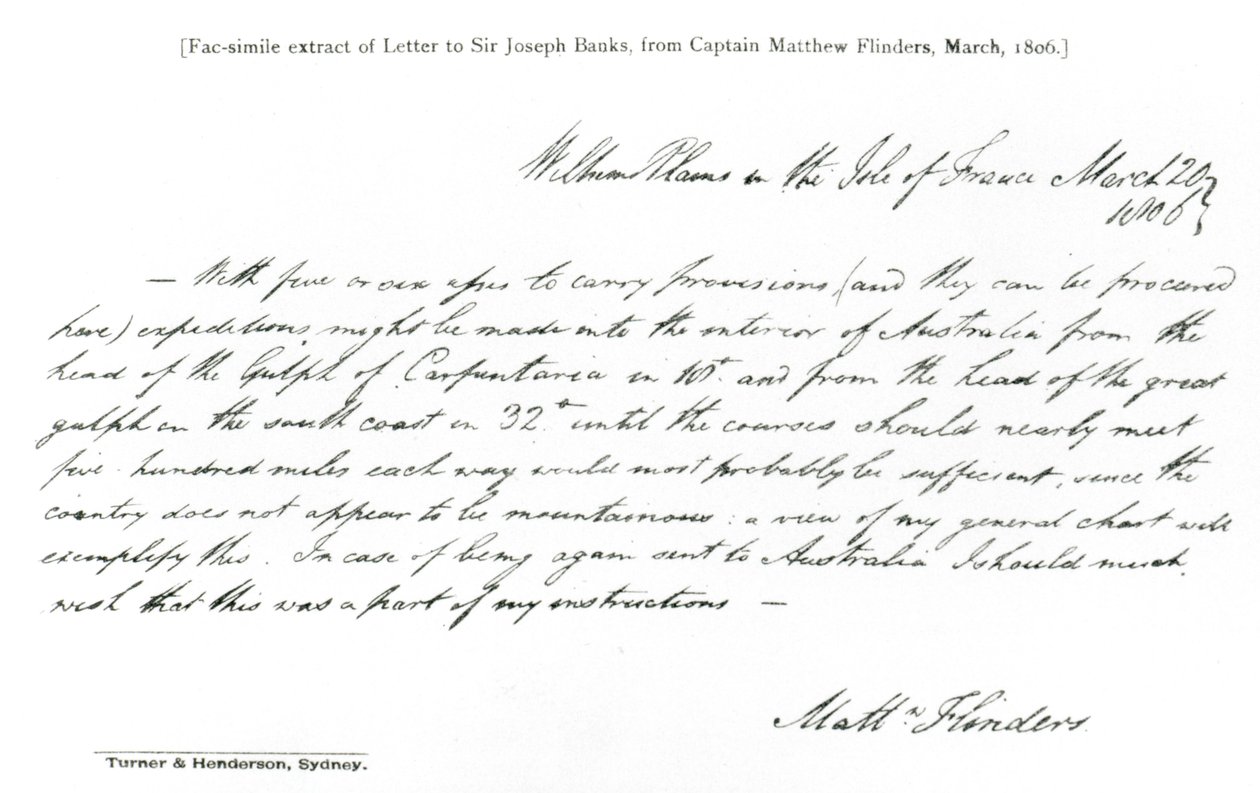 [Fac-simile extract of Letter to Sir Joseph Banks, from Captain Matthew Flinders, March, 1806.]
Wilhems Plains in the Isle of France March 20
1806
— With five or six asses to carry provisions, (and they can be procured
here) expeditions might be made into the interior of Australia from the
head of the Gulph of Carpentaria in and from the head of the great
gulph on the south coast in 32.° until the courses should nearly meet
five hundred miles each way would most probably be sufficient, since the
country does not appear to be mountainous: a view of my general chart will
exemplify this. In case of being again sent to Australia I should much
wish that this was a part of my instructions —
Matt.w Flinders
Turner & Henderson, Sydney.